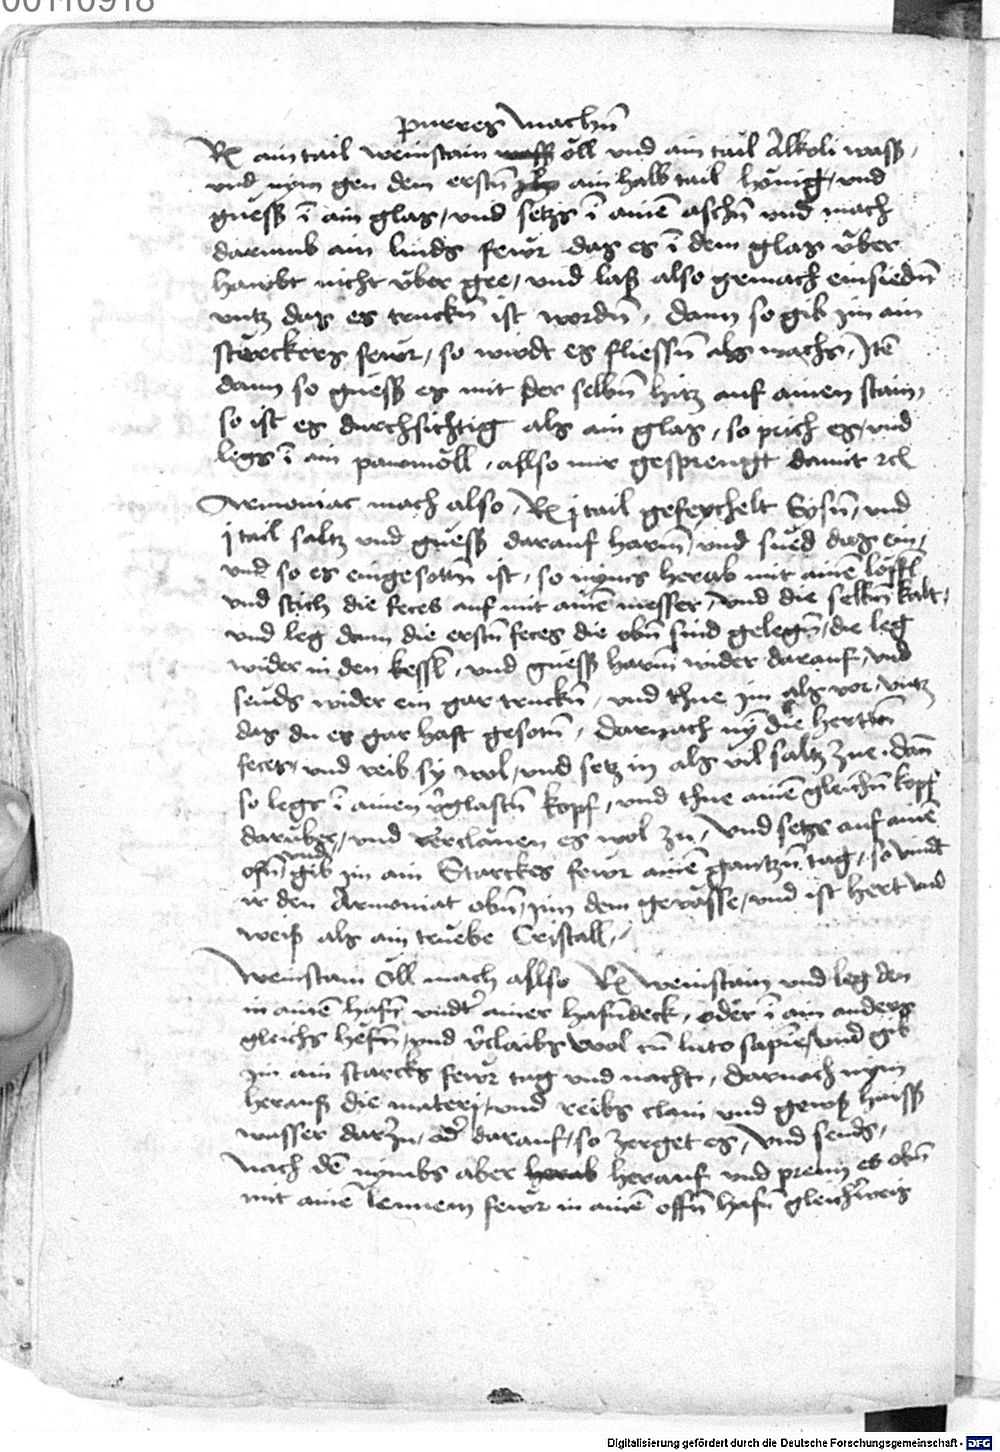 00110918
purres machen̄
Rx ain tail weinstain öll vnd ain tail Alkoli wass,
vnd nym gen dem erstn̄ ain halb tail hönig, vnd
guess ī ain glas, vnd setzs ī ainē aschn̄ vnd mach
darumb ain linds fewr das es ī dem glas vber
haubt nicht vber gee, vnd lass also gemach einsiedn̄
vntz das es truckn̄ ist wordn̄, dann so gib im ain
sterckers fewr, so wirdt es fliessn̄ als wachs, Itē
dann so guess es mit der selbn̄ hitz auf ainen stain,
so ist es durchsichtig als ain glas, so prich es, vnd
legs ī ain pawmöll, allso mir gesprengt damit rcl
Armoniac mach also, Rx j tail gefeychelt Eysn̄, vnd
j tail saltz vnd guess darauf harm̄, vnd sued das ein,
vnd so es eingesottn̄ ist, so nyms herab mit ainē löffl
vnd stich die feces auf mit ainē messer, vnd die selbn̄ kalt,
vnd leg dann die erstn̄ feces die obn̄ sind gelegn̄, die leg
wider in den kessl, vnd guess harm̄ wider darauf, vnd
seuds wider ein gar truckn̄, vnd thue im als vor, vntz
das du es gar hast gesotn̄, darnach nȳ die herttn̄
feces, vnd reib sy wol, vnd setz in als vil saltz zue, dan̄
so legs ī ainen v̄glastn̄ kopf, vnd thue ainē gleichn̄ kopf
daruber, vnd verclaiben es wol zu, vnd setzs auf ainē
ofn̄ vnd gib im ain Starckes fewr ainē gantzn̄ tag, so vindt
ir den Armoniac obn̄, inn dem gevässe, vnd ist hert vnd
weiss als ain truebe Cristall,
Weinstain Öll mach allso Rx weinstain vnd leg den
in ainē hafn̄ vndt̄ ainer hafndeck, oder ī ain anders
gleichs hefn̄, vnd v̄claibs wol cū luto sapīe, vnd gib
im ain starcks fewr tag vnd nacht, darnach nym
herauss die materj, vnd reibs clain vnd gewss haiss
wasser darzu, od̄ darauf, so zerget es, vnd seuds,
nach dē nymbs aber herauf vnd prenn es obn̄
mit ainē lennem fewr in ainē offn̄ hafn̄ gleicherweis
Digitalisierung gefördert durch die Deutsche Forschungsgemeinschaft - DFG